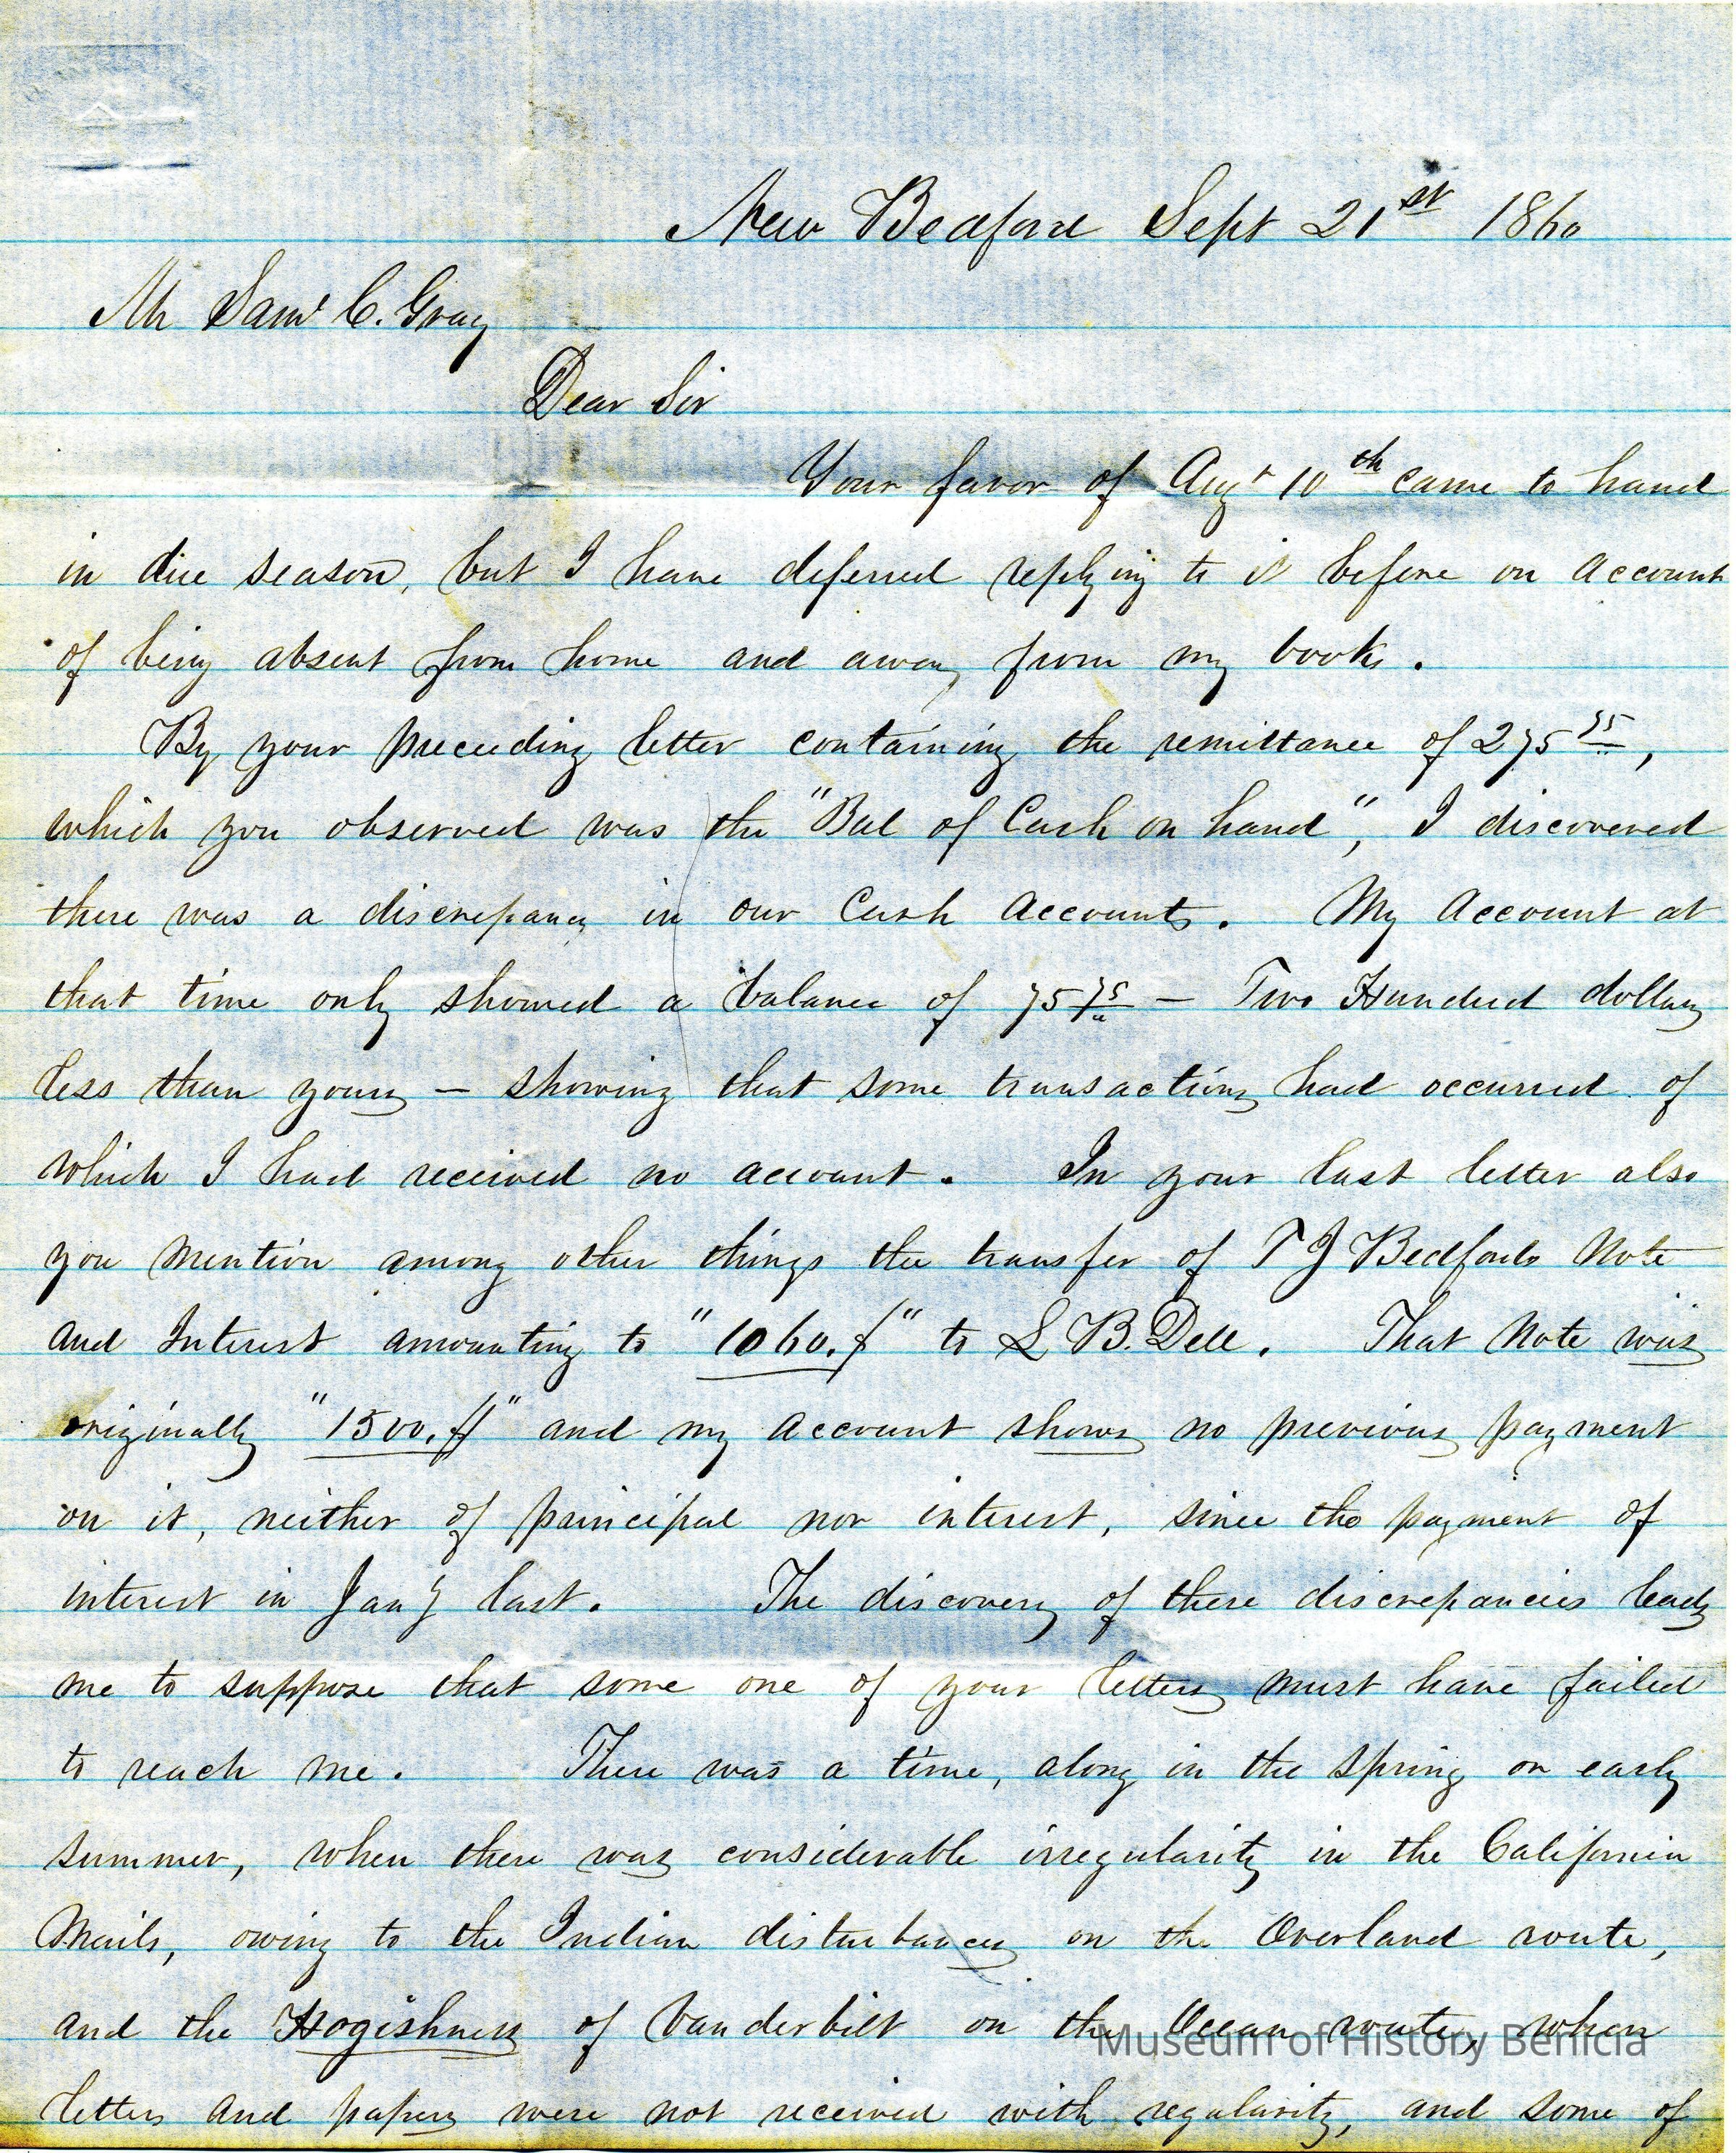 New Bedford Sept 21st 1860
Mr Saml C. Gray
Dear Sir
Your favor of Augt 10th came to hand
in due season, but I have deferred replying to it before on account
of being absent from home and away from my books.
By your preceeding letter containing the remittance of 275 75,
which you observed was the "Bal of Cash on hand", I discovered
there was a discrepancy in our Cash Accounts. My Account at
that time only showed a balance of 75 75 — Two Hundred dollars
less than yours — showing that some transactions had occurred of
which I had received no account. In your last letter also
you mention among other things the transfer of T J Bedfords Note
and Interest amounting to "1060.$" to L B. Dell. That Note was
originally "1500.$" and my account shows no previous payment
on it, neither of principal nor interest, since the payment of
interest in Jany last. The discovery of these discrepancies leads
me to suppose that some one of your letters must have failed
to reach me. There was a time, along in the spring or early
summer, when there was considerable irregularity in the California
Mails, owing to the Indian disturbances on the Overland route,
and the Hogishness of Vanderbilt on the Ocean route, when
letters and papers were not received with regularity, and some of
Museum of History Benicia